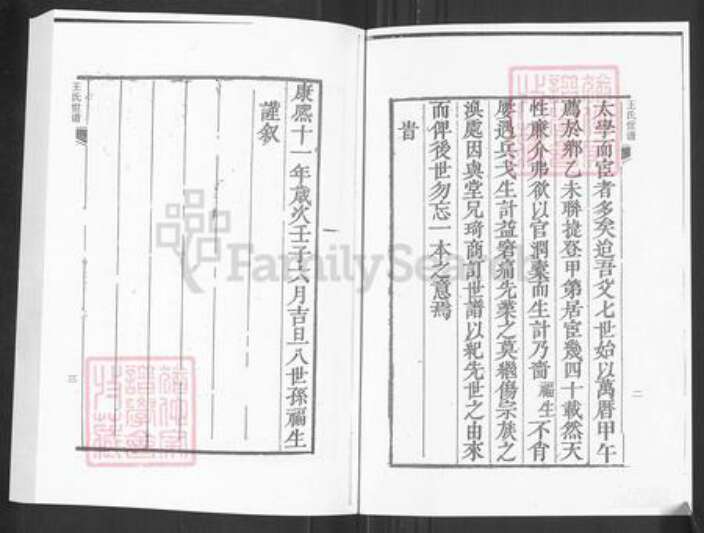 王氏世谱
太學而宦者多矣迨吾父七世始以萬曆甲午
薦於鄉乙未聯捷登甲第居宦幾四十載然天
性廉介弗欲以官潤橐而生計乃嗇福生不肖
屡遇兵戈生計益窘痛先業之莫繼傷宗族之
渙處因與堂兄琦商訂世譜以紀先世之由來
而俾後世勿忘一本之意焉
旹
二
康熈十一年歲次壬子六月吉旦八世孫福生
謹叙
王氏世谱
三
FamilySearch